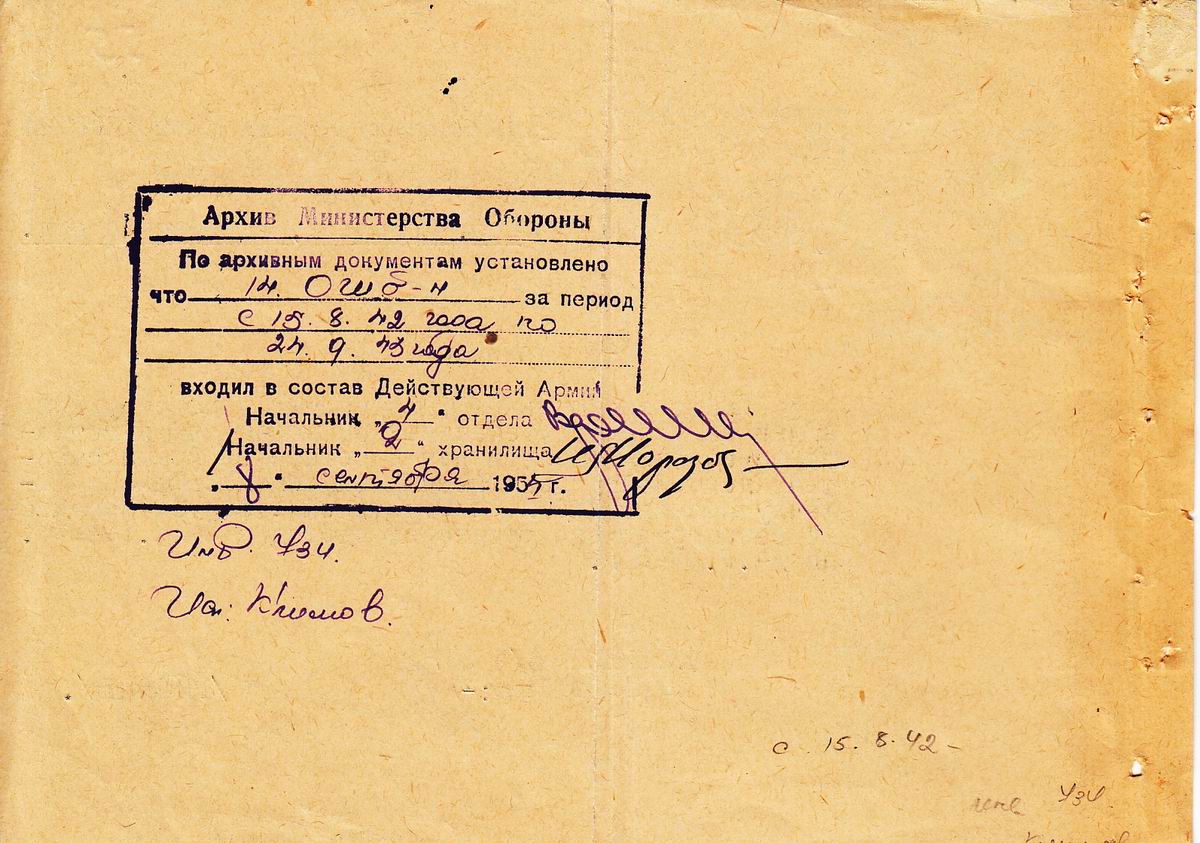 Архив Министерства Обороны
По архивным документам установлено
что 14. ОШб-н за период
с 15. 8. 42 года по
24. 9. 43 года
входил в состав Действующей Армии
Начальник „4“ отдела
Начальник „2“ хранилища
„8“ сентября 195 г.
Инв. 434.
Исп: Климов.
с 15. 8. 42 -
434